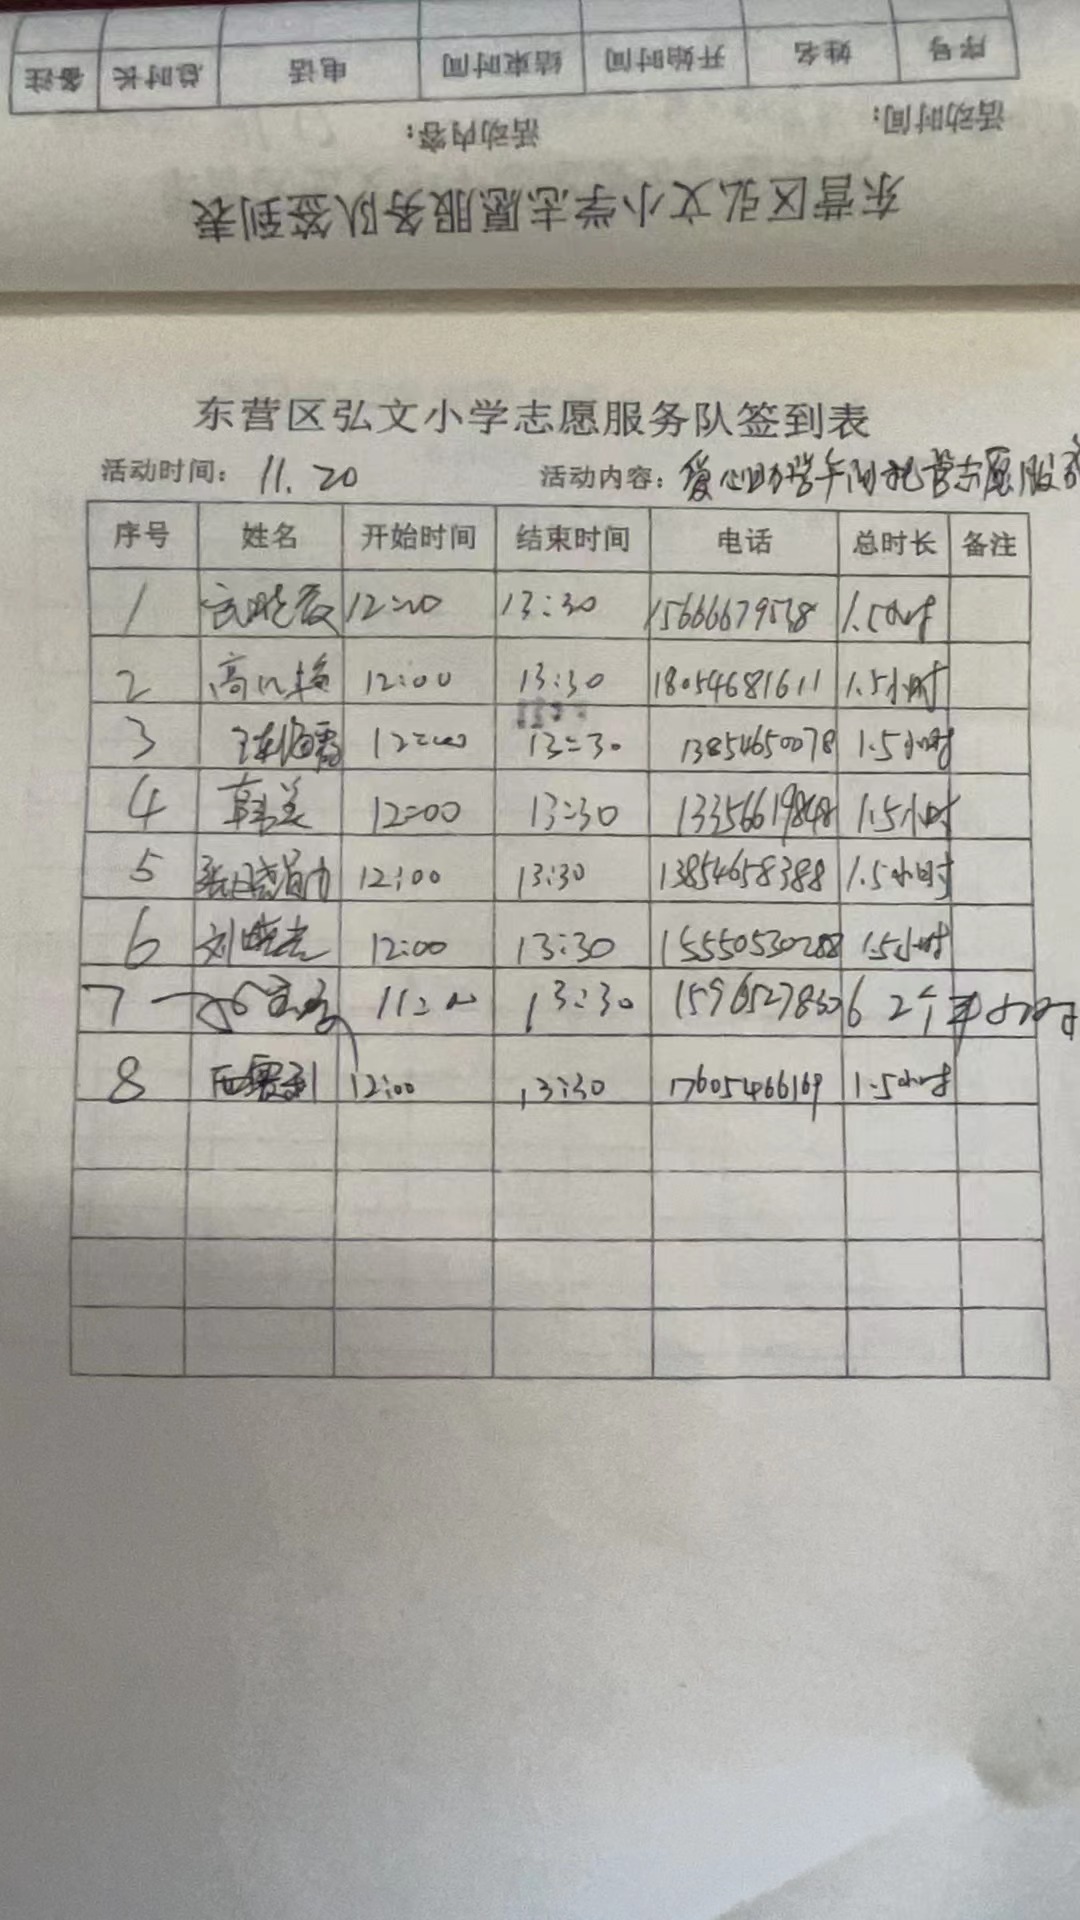 备注 总时长 电话 结束时间 开始时间 姓名 序号
活动内容： 活动时间：
东营区弘文小学志愿服务队签到表
东营区弘文小学志愿服务队签到表
活动时间：11.20 活动内容：爱心助学午间托管志愿服务
序号 姓名 开始时间 结束时间 电话 总时长 备注
1 12:00 13:30 1.5小时
2 高 12:00 13:30 18054681611 1.5小时
3 12:00 13:30 13854650078 1.5小时
4 韩美 12:00 13:30 13356619848 1.5小时
5 12:00 13:30 13854658388 1.5小时
6 刘晓 12:00 13:30 15550530288 1.5小时
7 11:00 13:30 15965278306 2个半小时
8 12:00 13:30 17605466169 1.5小时